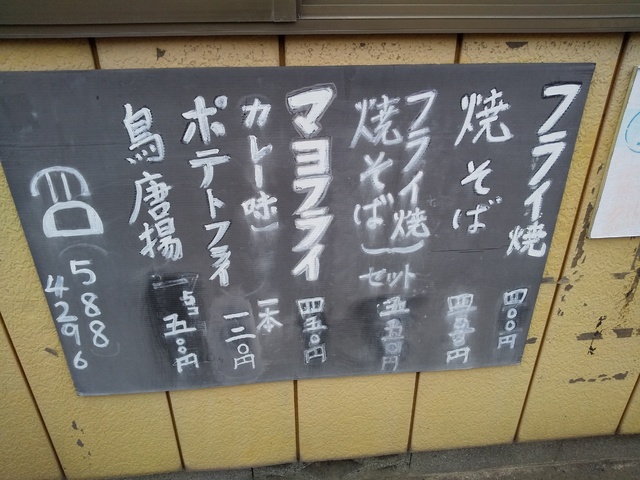 フライ焼 四〇〇円
焼そば 四五〇円
フライ焼
焼そば
セット 五五〇円
マヨフライ 四五〇円
カレー味 一本
ポテトフライ 一三〇円
鳥唐揚 五〇円
588
4296